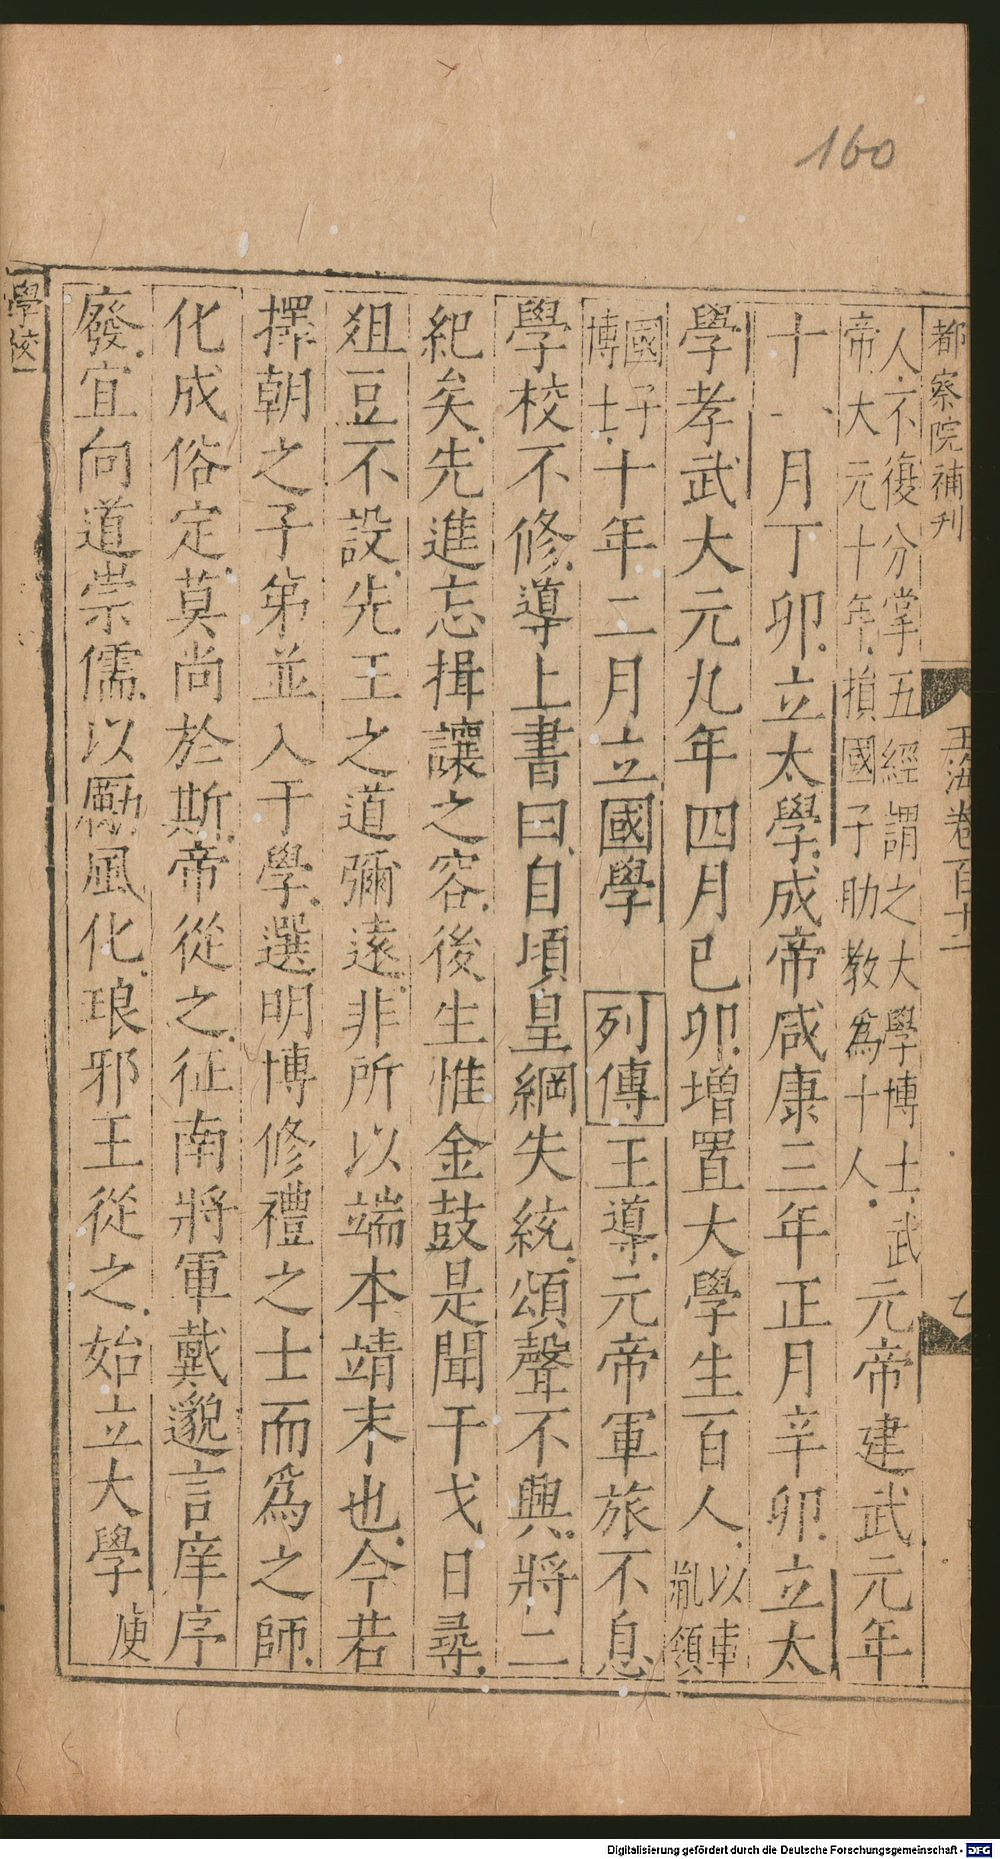 160
都察院補刊
玉海卷百十二
人不復分掌五經謂之大學博士武
帝大元十年損國子助教為十人
元帝建武元年
十一月丁卯立太學成帝咸康三年正月辛卯立太
學孝武大元九年四月已卯增置大學生百人
以車
胤領
國子
博士
十年二月立國學
列傳
王導元帝軍旅不息
學校不修導上書曰自頃皇綱失統頌聲不興將二
紀矣先進忘揖讓之容後生惟金鼓是聞干戈日尋
俎豆不設先王之道彌遠非所以端本靖末也今若
擇朝之子弟並入于學選明博修禮之士而為之師
化成俗定莫尚於斯帝從之征南將軍戴邈言庠序
廢宜向道崇儒以勵風化琅邪王從之始立大學
庾
學校一
Digitalisierung gefördert durch die Deutsche Forschungsgemeinschaft - DFG